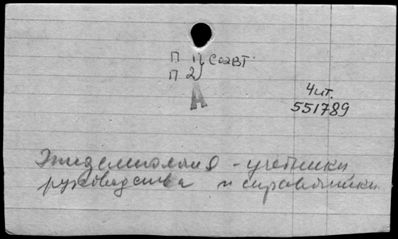 П 11 Соавт.
П 2
А
Чит.
551789
Эпидемиология - учебники
руководства и справочники